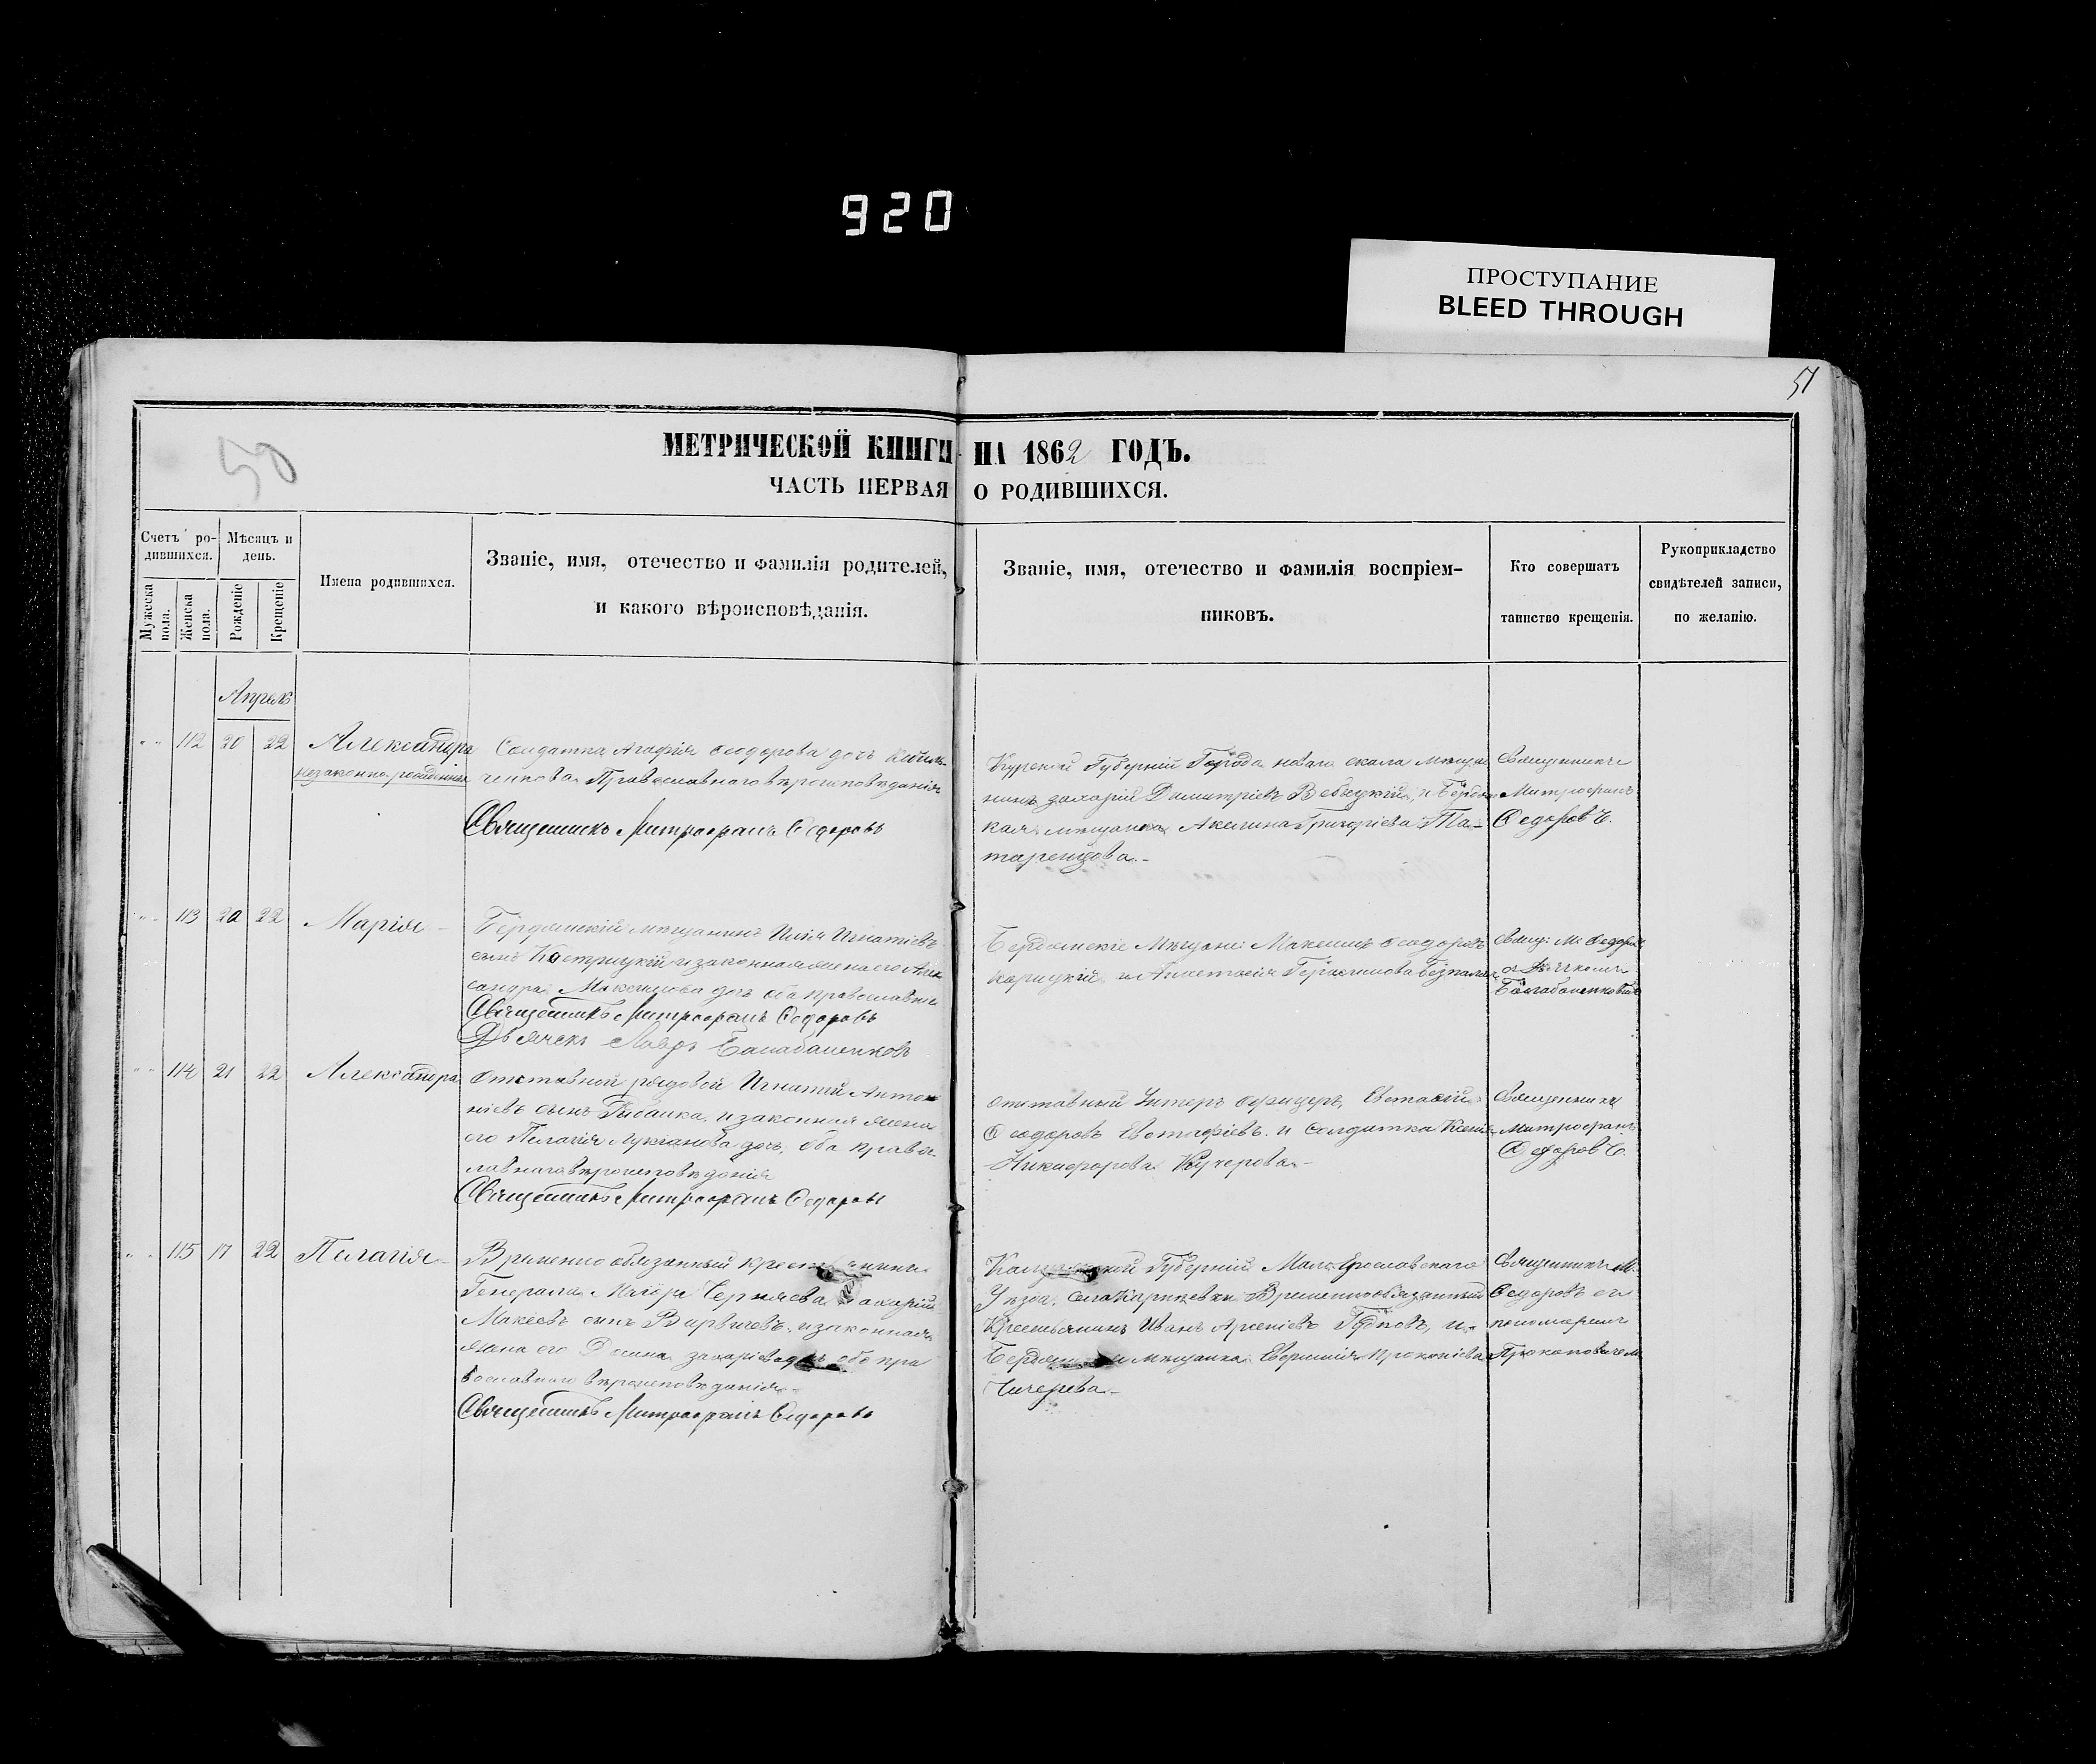 920
ПРОСТУПАНИЕ
BLEED THROUGH
51
50
МЕТРИЧЕСКОЙ КНИГИ НА 1862 ГОДЪ.
ЧАСТЬ ПЕРВАЯ О РОДИВШИХСЯ.
Счетъ ро-
дившихся.
Мужеска пола.
Женска пола.
Мѣсяцъ и
день.
Рожденіе
Крещеніе
Имена родившихся.
Званіе, имя, отечество и фамилія родителей,
и какого вѣроисповѣданія.
Званіе, имя, отечество и фамилія воспріем-
никовъ.
Кто совершатъ
таинство крещенія.
Рукоприкладство
свидѣтелей записи,
по желанію.
Апрѣль
112 20 22 Александра
незаконно-рожденная
Солдатка Агафія Феодорова дочь
Православнаго вѣроисповѣданія
Священникъ Митрофанъ Федоровъ
Курской Губерніи Города новаго скола мѣща
нинъ Захарій Димитріевъ
кая мѣщанка Акилина Григоріева Та-
таренцова
Священникъ
Митрофанъ
Федоровъ.
113 20 22 Марія
Бердянскій мѣщанинъ Илія Игнатіевъ
сынъ Кострицкій и законная жена его Алек
сандра Максимова дочь оба православные
Священникъ Митрофанъ Федоровъ
Дьячекъ Лавръ Балабаненковъ
Бердянскіе Мѣщане: Максимъ Феодоровъ
Корицкій и Анастасія Герасимова
Свящ: М. Федоровъ
съ Дьячкомъ
Балабаненковымъ
114 21 22 Александра
Отставной рядовой Игнатій Анто
ніевъ сынъ и законная жена
его Пелагія Лукianова дочь, оба правос
лавнаго вѣроисповѣданія
Священникъ Митрофанъ Федоровъ
Отставный Унтеръ Офицеръ, Евстафій
Феодоровъ Евстафіевъ и Солдатка Ксенія
Никифорова Кучерова
Священникъ
Митрофанъ
Федоровъ.
115 17 22 Пелагія
Временно обязанный
Генерала Маіора Черняева Макарій
Макѣевъ сынъ и законная
жена его Домна Захаріева дочь оба пра
вославнаго вѣроисповѣданія
Священникъ Митрофанъ Федоровъ
Губерніи Мало Ярославскаго
Уѣзда, села Карижевки Временнообязанный
Крестьянинъ Иванъ Арсеніевъ Гудковъ, и
мѣщанка Евфимія Прокопіева
Чичерева
Священникъ М.
Федоровъ съ
пономаремъ
Прокоповичемъ